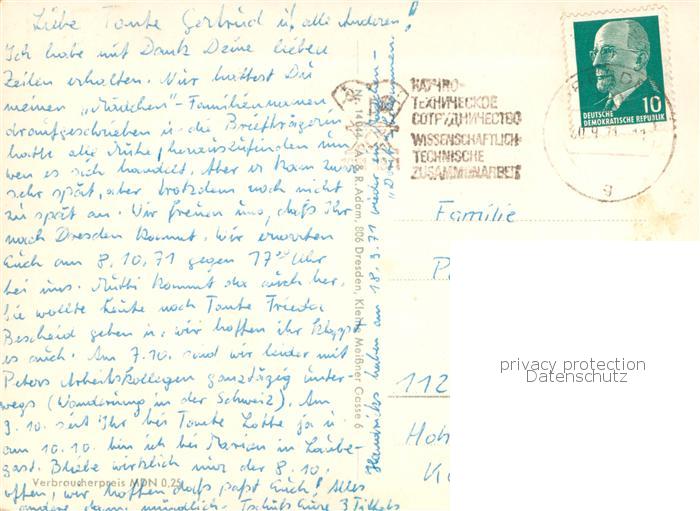 Liebe Tante Gertrud u. alle Anderen!
Ich habe mit Dank Deine lieben
Zeilen erhalten. Nur hattest Du
meinen „Mädchen"-Familiennamen
draufgeschrieben u. die Briefträgerin
hatte alle Mühe, herauszufinden um
wen es sich handelt. Aber er kam zwar
sehr spät, aber trotzdem noch nicht
zu spät an. Wir freuen uns, daß Ihr
nach Dresden kommt. Wir erwarten
Euch am 8.10.71 gegen 17 Uhr
bei uns. Mutti kommt da auch her.
Sie wollte heute noch Tante Frieda
Bescheid geben u. wir hoffen ihr klappt
es auch. Am 7.10. sind wir leider mit
Peters Arbeitskollegen ganztägig unter-
wegs (Wanderung in der Schweiz). Am
9.10. seit Ihr bei Tante Lotte ja u.
am 10.10. bin ich bei Marion in Laube-
gast. Bliebe wirklich nur der 8.10.
offen, wir hoffen daß paßt Euch! Alles
andere dann mündlich. Tschüß Eure 3
Verbraucherpreis MDN 0,25
Hendricks haben am 18.9.71 wieder ein
A. & R. Adam, 806 Dresden, Kleine Meißner Gasse 6
НАУЧНО-
ТЕХНИЧЕСКОЕ
СОТРУДНИЧЕСТВО
WISSENSCHAFTLICH-
TECHNISCHE
ZUSAMMENARBEIT
10
DEUTSCHE
DEMOKRATISCHE REPUBLIK
20.9.71
g
Familie
P
112
Hoh
K
privacy protection
Datenschutz